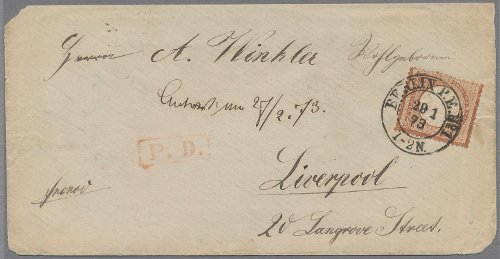 Herrn A. Winkler Wohlgeboren
BERLIN P.E.
29 1
73
1-2N.
Antwort am 27/2.73.
P. D.
franco
Liverpool
20 Langrove Street.